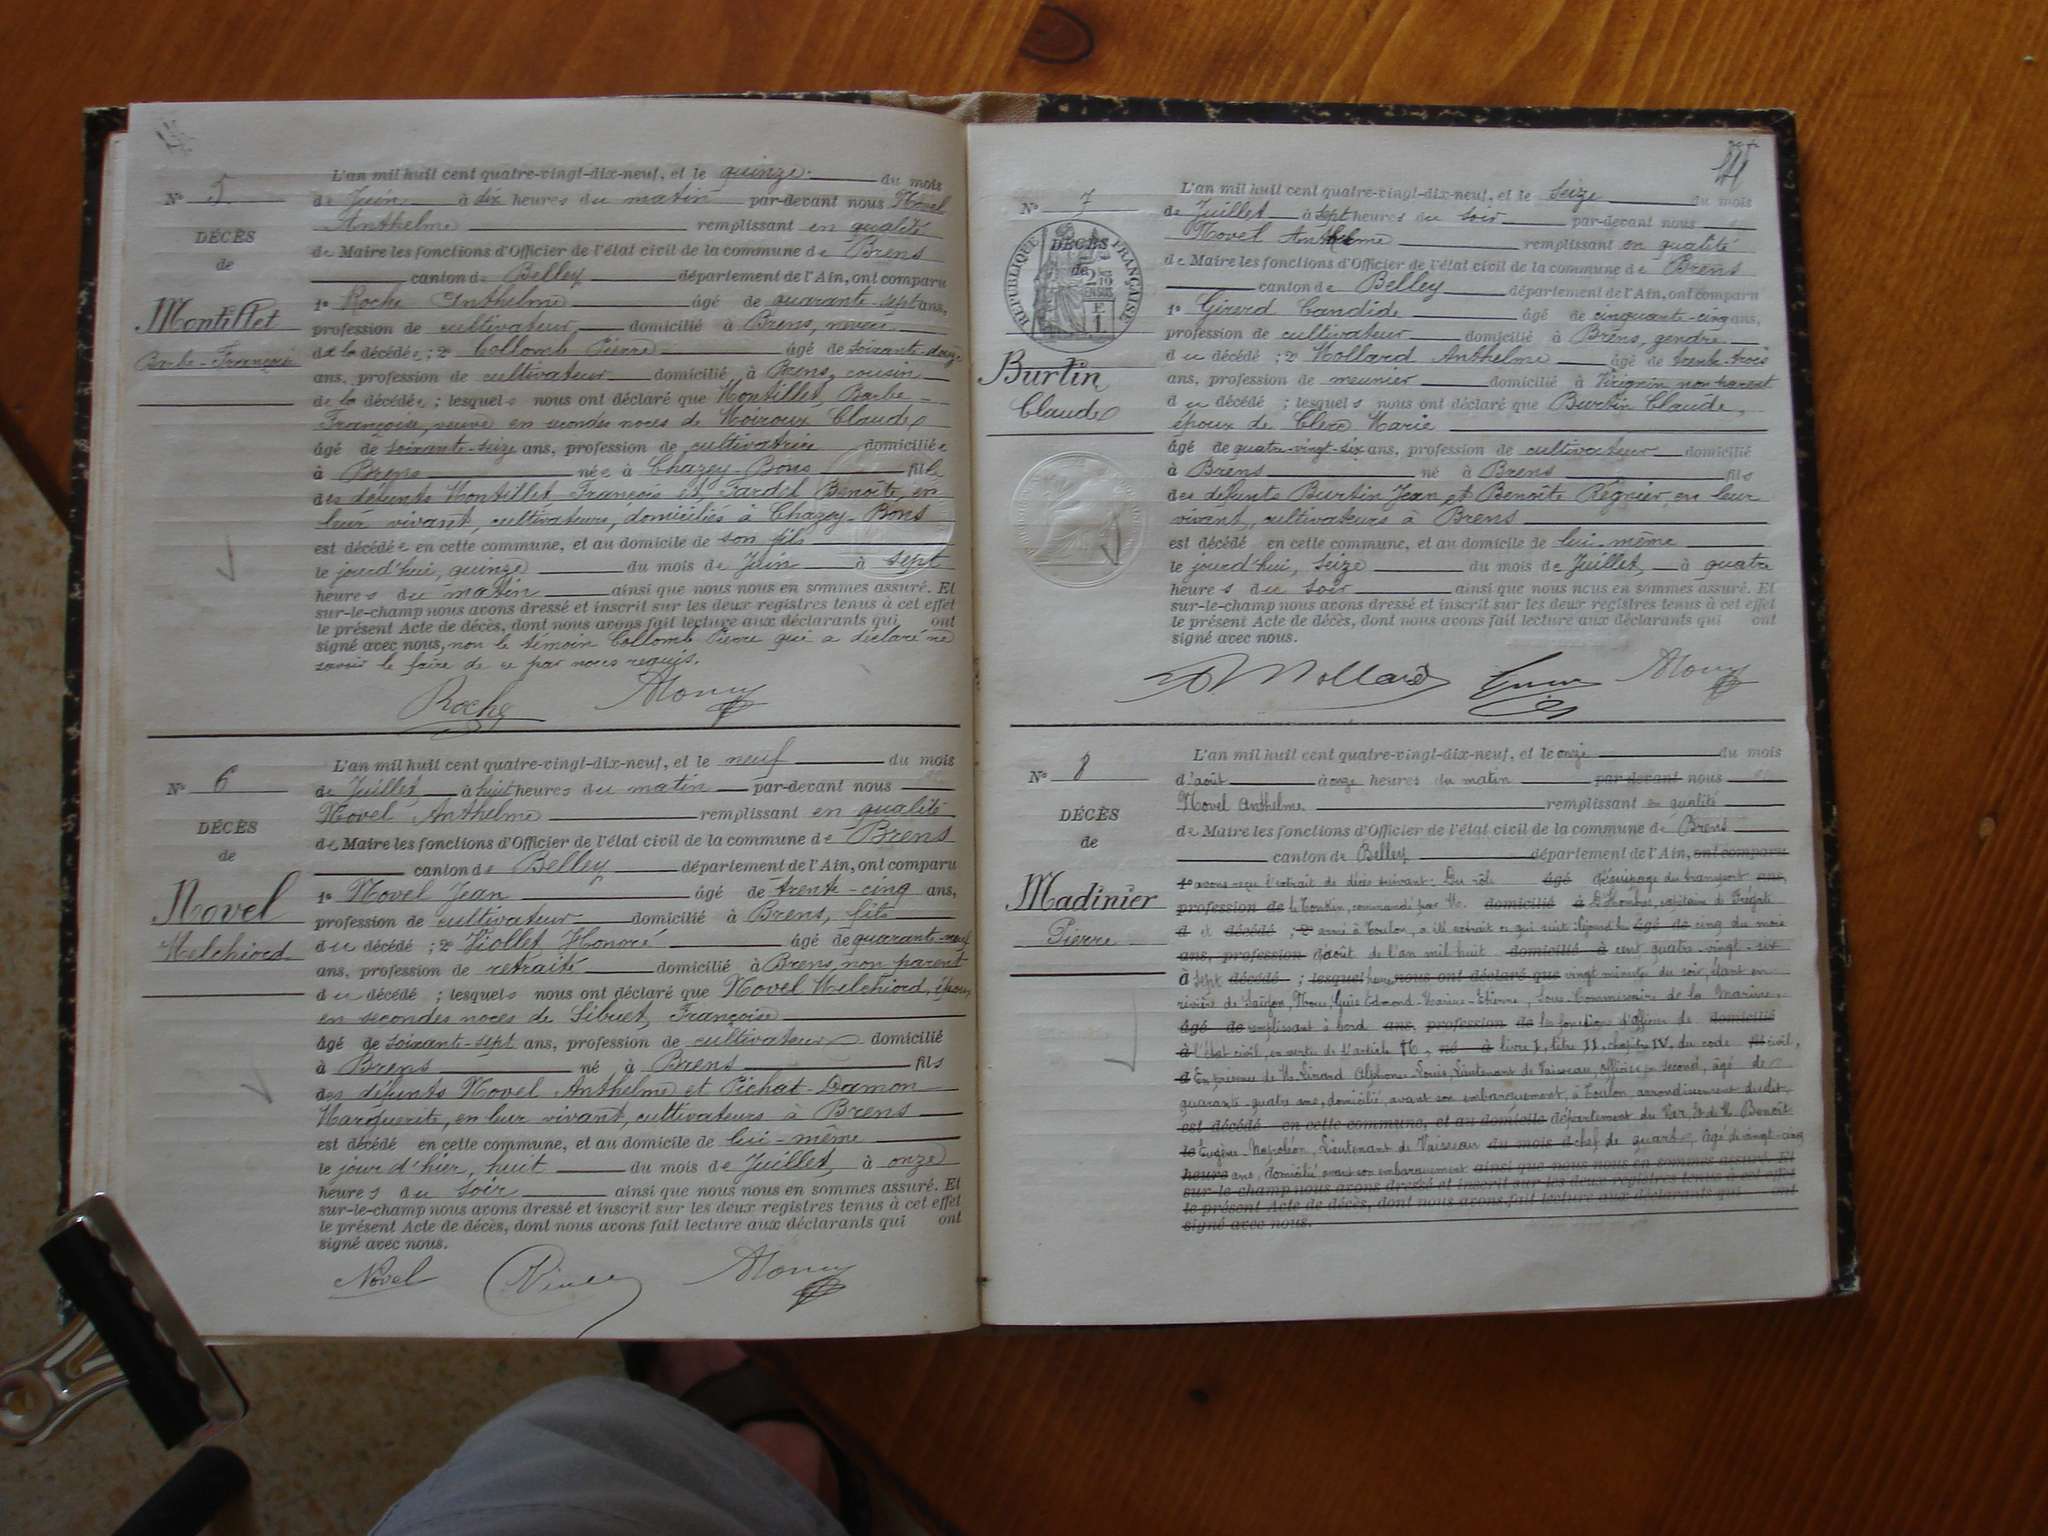 L'an mil huit cent quatre-vingt-dix-neuf, et le quinze du mois
N° 5 de Juin à dix heures du matin par-devant nous Novel
Anthelme remplissant en qualité
DÉCÈS de Maire les fonctions d'Officier de l'état civil de la commune de Brens
de canton de Belley département de l'Ain, ont comparu
Montillet 1° Roche Anthelme âgé de quarante-sept ans,
profession de cultivateur, domicilié à Brens, neveu
Barbe-Françoise de la décédée ; 2° Collomb Pierre âgé de soixante-douze
ans, profession de cultivateur domicilié à Brens, cousin
de la décédée ; lesquels nous ont déclaré que Montillet, Barbe-
Françoise, veuve en secondes noces de Moiroux Claude
âgé de soixante-seize ans, profession de cultivatrice domiciliée
à Brens née à Chazey-Bons fille
des défunts Montillet, François et Tardil Benoîte, en
leur vivant, cultivateurs, domiciliés à Chazey-Bons
est décédée en cette commune, et au domicile de son fils
le jourd'hui, quinze du mois de Juin à sept
heures du matin ainsi que nous nous en sommes assuré. Et
sur-le-champ nous avons dressé et inscrit sur les deux registres tenus à cet effet
le présent Acte de décès, dont nous avons fait lecture aux déclarants qui ont
signé avec nous, non le témoin Collomb Pierre qui a déclaré ne
savoir le faire de ce par nous requis.
Roche
L'an mil huit cent quatre-vingt-dix-neuf, et le neuf du mois
N° 6 de Juillet à huit heures du matin par-devant nous
Novel Anthelme remplissant en qualité
DÉCÈS de Maire les fonctions d'Officier de l'état civil de la commune de Brens
de canton de Belley département de l'Ain, ont comparu
Novel 1° Novel Jean âgé de trente-cinq ans,
profession de cultivateur domicilié à Brens, fils
Melchiord du décédé ; 2° Viollet Honoré âgé de quarante-neuf
ans, profession de retraité domicilié à Brens, non parent
du décédé ; lesquels nous ont déclaré que Novel Melchiord, époux
en secondes noces de Sibuet, Françoise
âgé de soixante-sept ans, profession de cultivateur domicilié
à Brens né à Brens fils
des défunts Novel Anthelme et Pichat-Damon
Marguerite, en leur vivant, cultivateurs à Brens
est décédé en cette commune, et au domicile de lui-même
le jour d'hier, huit du mois de Juillet, à onze
heures du soir ainsi que nous nous en sommes assuré. Et
sur-le-champ nous avons dressé et inscrit sur les deux registres tenus à cet effet
le présent Acte de décès, dont nous avons fait lecture aux déclarants qui ont
signé avec nous.
Novel
L'an mil huit cent quatre-vingt-dix-neuf, et le seize du mois
N° 7 de Juillet à sept heures du soir par-devant nous
Novel Anthelme remplissant en qualité
DÉCÈS de Maire les fonctions d'Officier de l'état civil de la commune de Brens
de canton de Belley département de l'Ain, ont comparu
RÉPUBLIQUE FRANÇAISE
1° Girerd Candide âgé de cinquante-cinq ans,
profession de cultivateur domicilié à Brens, gendre
Burtin du décédé ; 2° Mollard Anthelme âgé de trente-trois
ans, profession de meunier domicilié à Virignin non parent
Claude du décédé ; lesquels nous ont déclaré que Burtin Claude,
époux de Clerc Marie
âgé de quatre-vingt-six ans, profession de cultivateur domicilié
à Brens né à Brens fils
des défunts Burtin Jean et Benoîte Régnier, en leur
vivant, cultivateurs à Brens
est décédé en cette commune, et au domicile de lui-même
le jourd'hui, seize du mois de Juillet, à quatre
heures du soir ainsi que nous nous en sommes assuré. Et
sur-le-champ nous avons dressé et inscrit sur les deux registres tenus à cet effet
le présent Acte de décès, dont nous avons fait lecture aux déclarants qui ont
signé avec nous.
Mollard
L'an mil huit cent quatre-vingt-dix-neuf, et le onze du mois
N° 8 d'août à onze heures du matin par-devant nous
Novel Anthelme remplissant en qualité
DÉCÈS de Maire les fonctions d'Officier de l'état civil de la commune de Brens
de canton de Belley département de l'Ain, ont comparu
1° avons reçu l'extrait de décès suivant. Du rôle âgé d'équipage du transport ans,
Madinier profession de le Tonkin, commandé par M. domicilié à capitaine de Frégate
Pierre d et décédé ; 2° armé à Toulon, a été extrait ce qui suit : âgé de cinq du mois
ans, profession d'août de l'an mil huit domicilié à cent quatre-vingt-six
à sept décédé ; lesquel heures nous ont déclaré que vingt minutes du soir, étant en
rivière de Saïgon, Nous, Edmond-Etienne, Sous-Commissaire de la Marine,
âgé de remplissant à bord ans, profession de les fonctions d'officier de domicilié
à l'état civil, en vertu de l'article 86, né à livre I, titre II, chapitre IV, du code fil civil,
d En présence de M. Alphonse-Louis, Lieutenant de Vaisseau, officier en second, âgé de
quarante-quatre ans, domicilié, avant son embarquement, à Toulon, arrondissement dudit,
est décédé en cette commune, et au domicile département du Var, Et de M. Benoît
le Eugène-Napoléon, Lieutenant de Vaisseau du mois d chef de quart, âgé de vingt-cinq
heure ans, domicilié, avant son embarquement ainsi que nous nous en sommes assuré. Et
sur-le-champ nous avons dressé et inscrit sur les deux registres tenus à cet effet
le présent Acte de décès, dont nous avons fait lecture aux déclarants qui ont
signé avec nous.